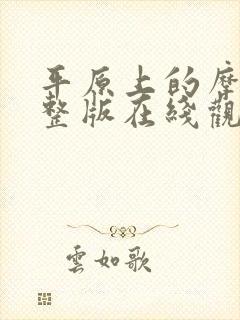 平原上的摩
整版在綫觀
雲如歌